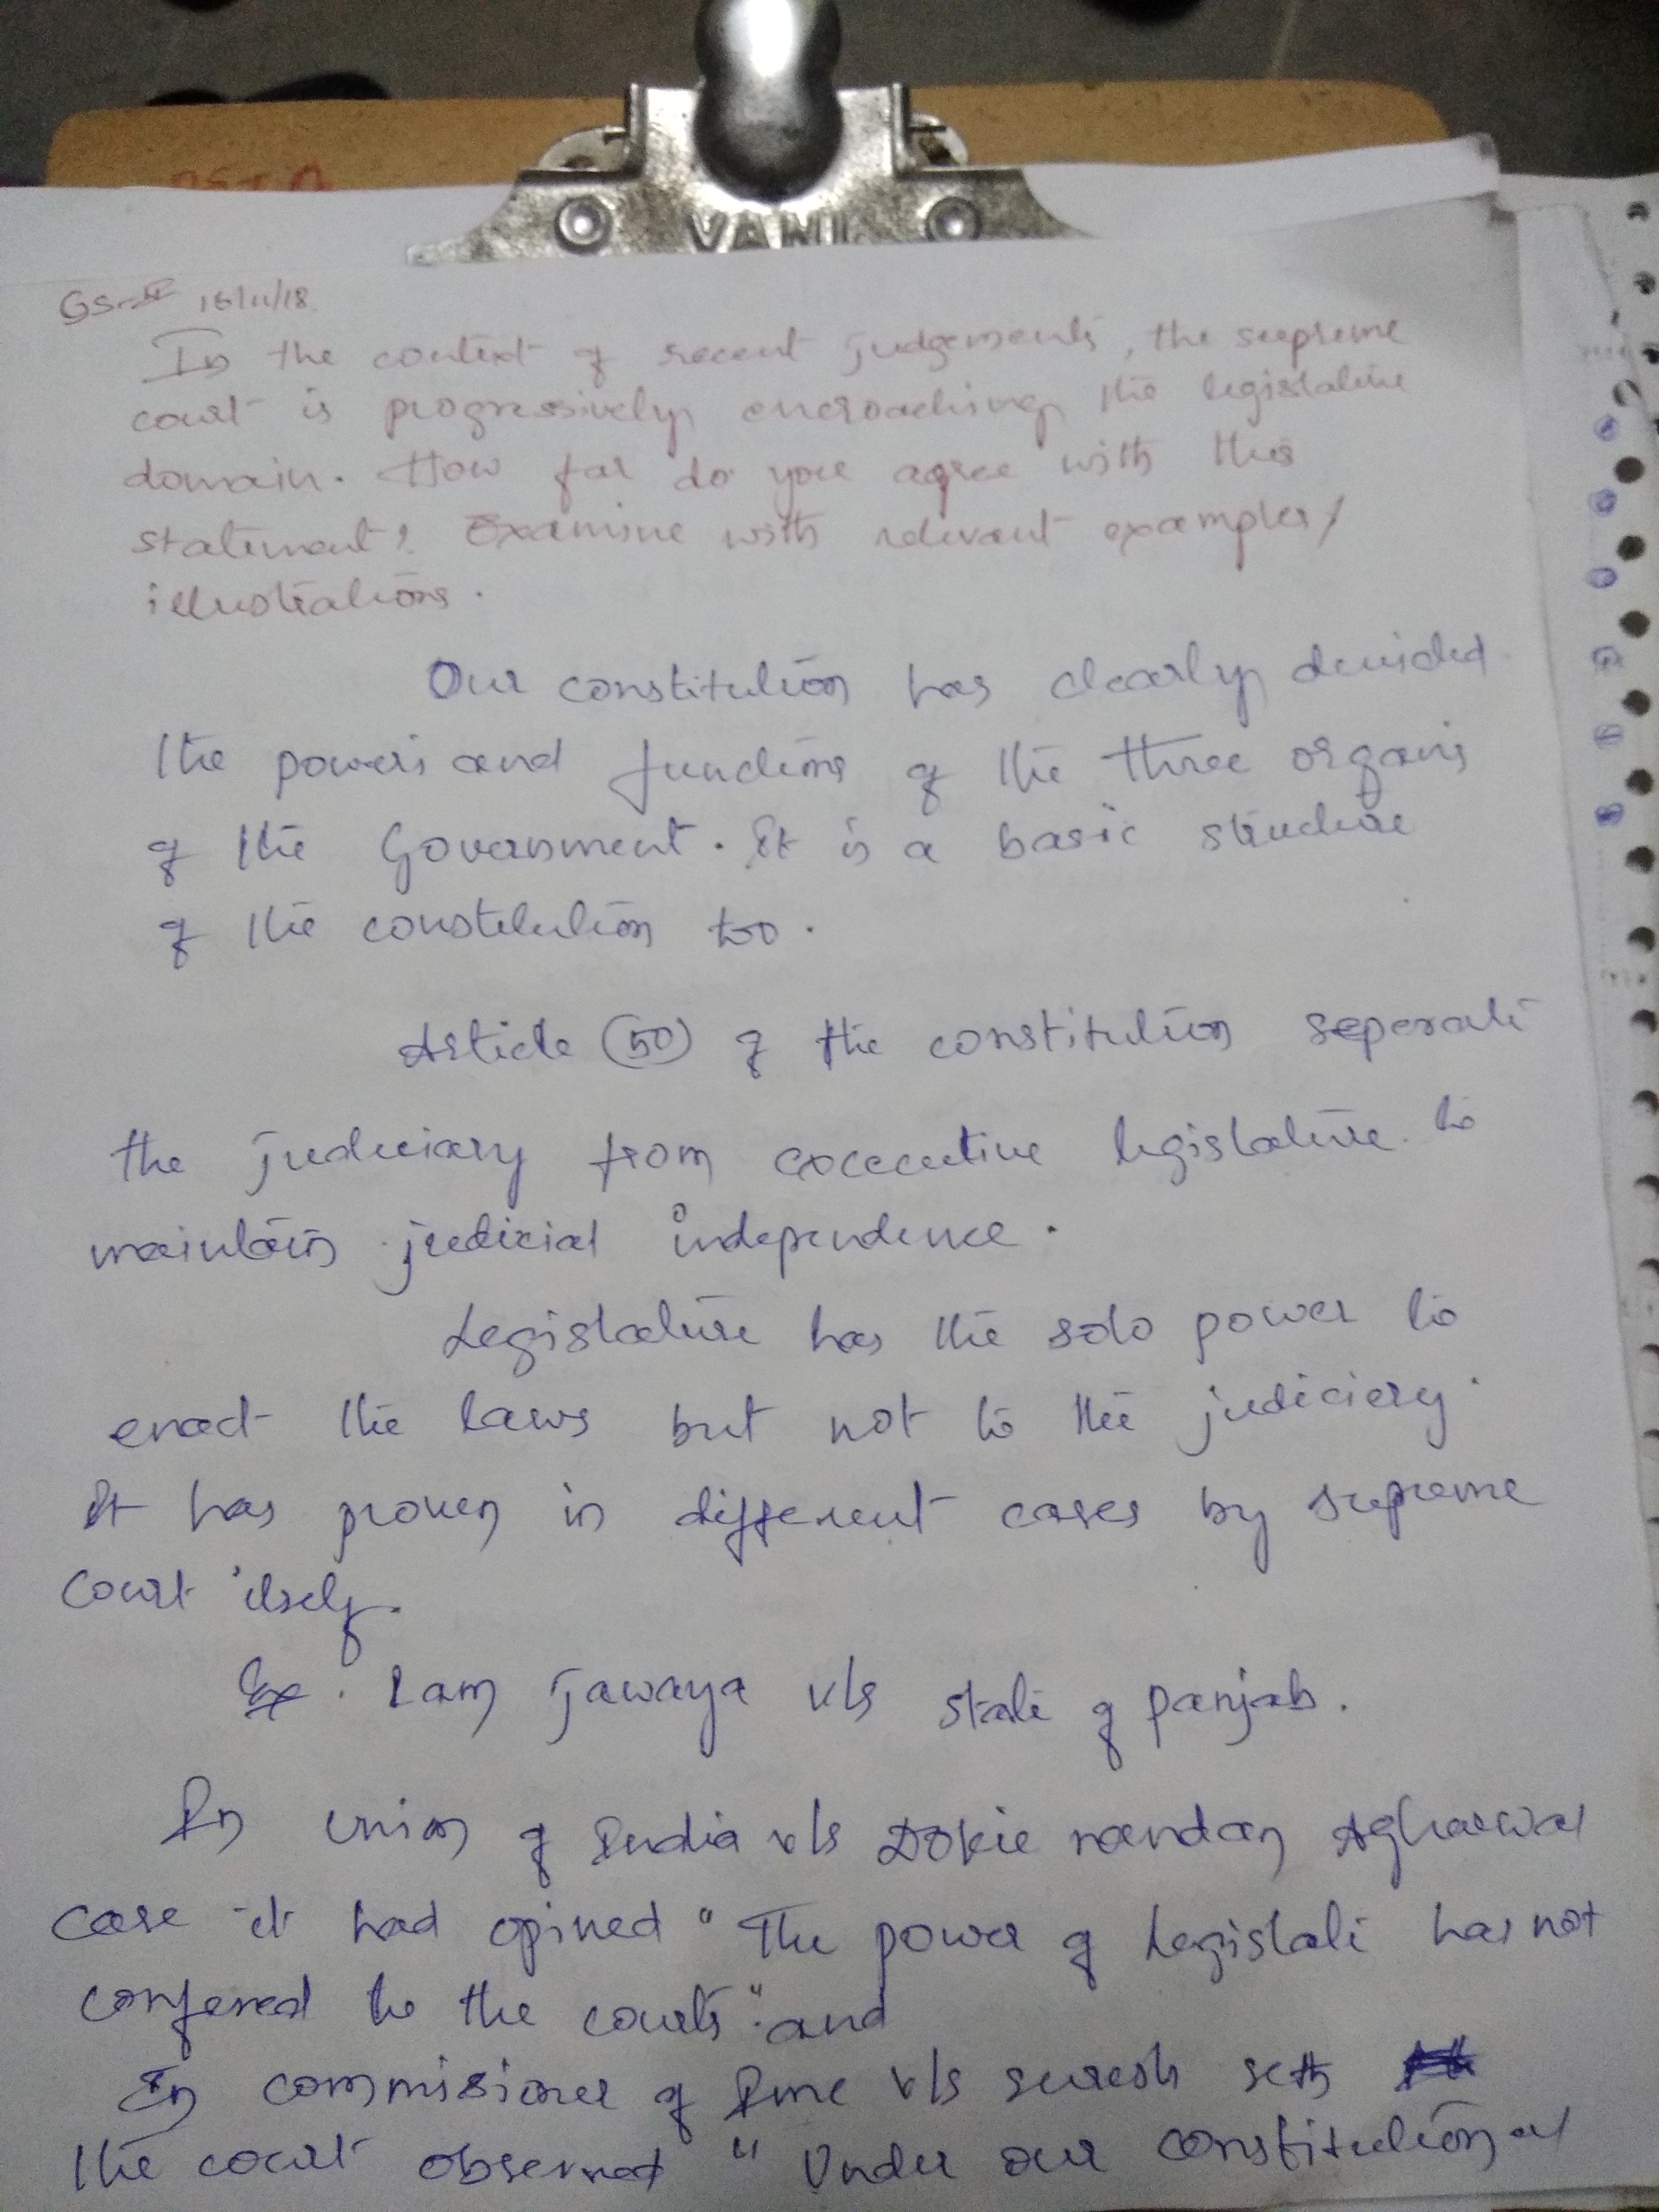 VANI
GS-II 15/11/18
In the context of recent judgements, the supreme
court is progressively encroaching the legislative
domain. How far do you agree with this
statement? Examine with relevant examples/
illustrations.
Our constitution has clearly devided
the powers and functions of the three organs
of the Government. It is a basic structure
of the constitution too.
Article (50) of the constitution seperate
the judiciary from excecutive legislature to
maintain judicial independence.
Legislature has the solo power to
enact the laws but not to the judiciary.
It has proven in different cases by supreme
court itself.
Ex. Ram Jawaya v/s state of Panjab.
In union of India v/s Dokie nandan Agharwal
case it had opined "The power of Legislate has not
conferred to the courts". and
In commisioner of Rme v/s suresh seth
the court observed "Under our constitution